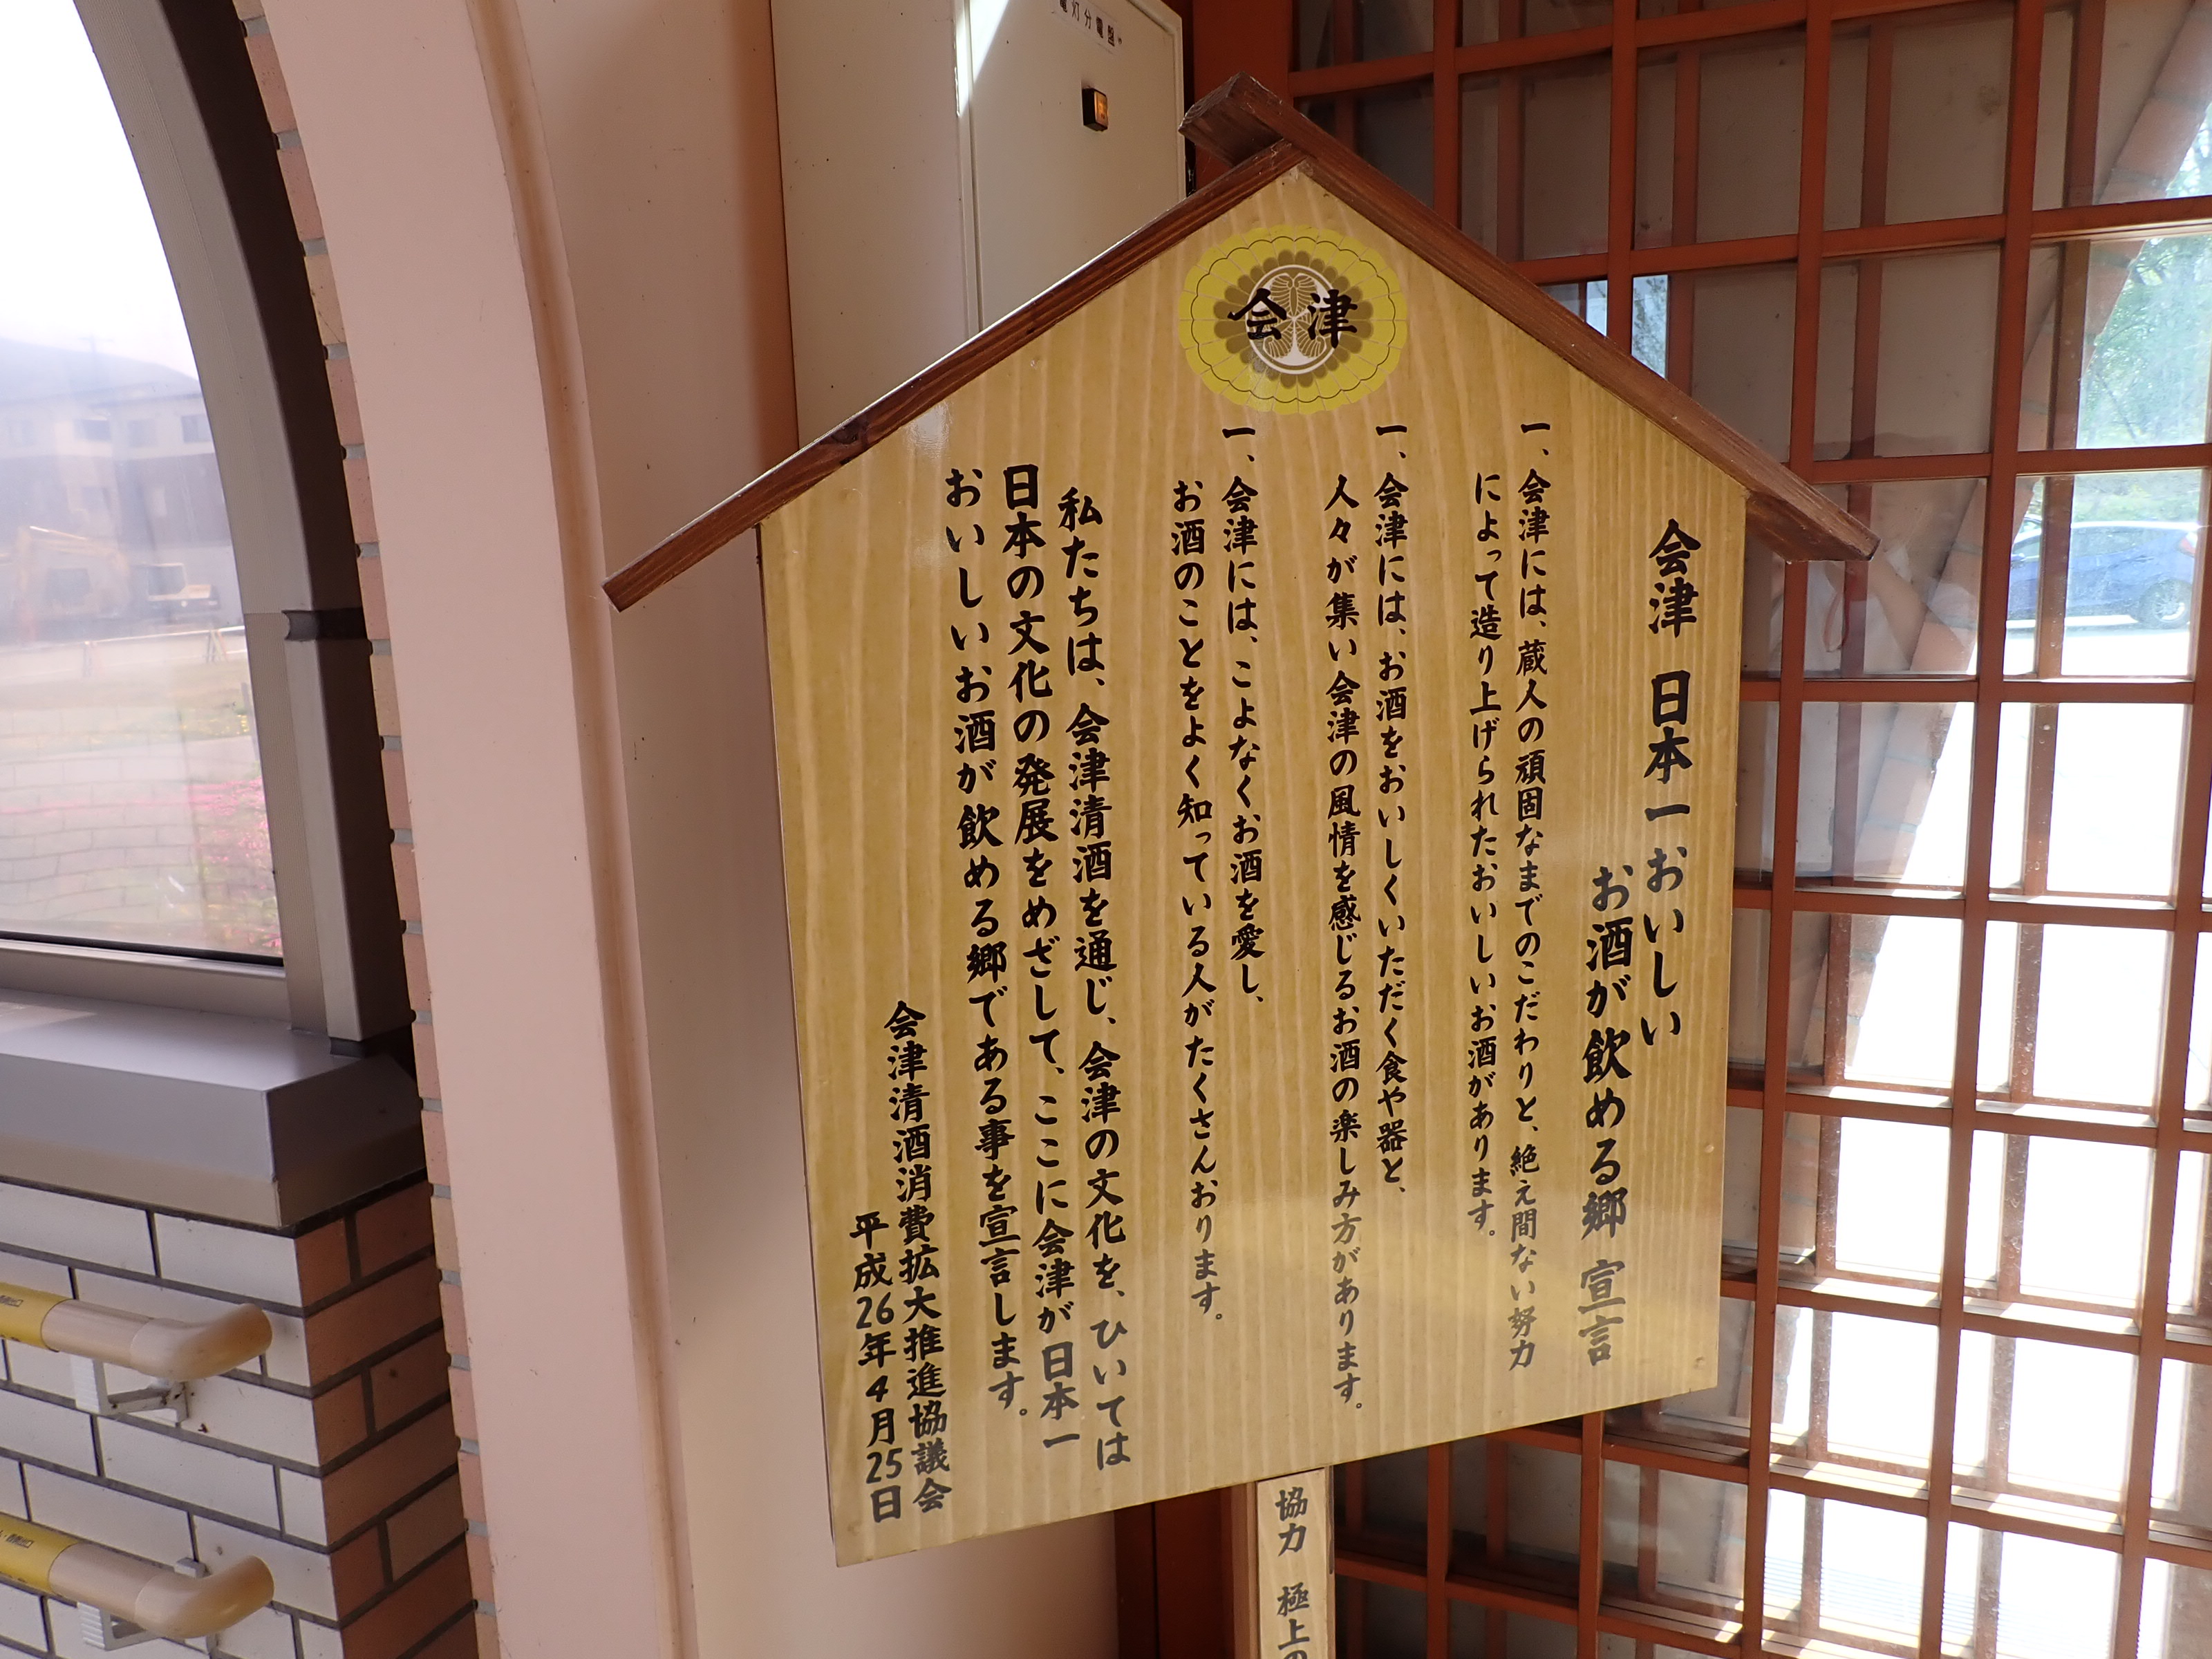 電灯分電盤
会津
会津 日本一おいしい
お酒が飲める郷 宣言
一、会津には、蔵人の頑固なまでのこだわりと、絶え間ない努力
によって造り上げられたおいしいお酒があります。
一、会津には、お酒をおいしくいただく食や器と、
人々が集い会津の風情を感じるお酒の楽しみ方があります。
一、会津には、こよなくお酒を愛し、
お酒のことをよく知っている人がたくさんおります。
私たちは、会津清酒を通じ、会津の文化を、ひいては
日本の文化の発展をめざして、ここに会津が日本一
おいしいお酒が飲める郷である事を宣言します。
会津清酒消費拡大推進協議会
平成26年4月25日
協力 極上の